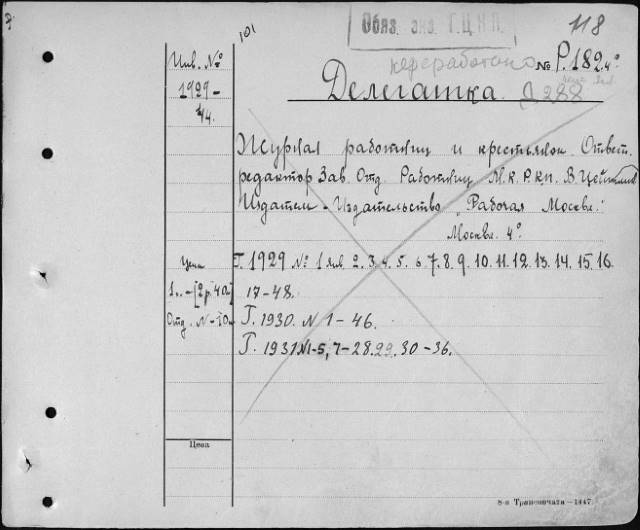 101
Обяз. экз. Г.Ц.К.П.
118
переработано
№ Р.182.4°
Инв. №
Делегатка
Д 288
1929 –
1/4.
Журнал работниц и крестьянок. Ответ.
редактор Зав. Отд. Работниц М.К.Р.К.П. В. Цейтлин
Издатель. Издательство „Рабочая Москва“.
Москва. 4°.
Цена
Г. 1929 № 1 янв. 2. 3. 4. 5. 6. 7. 8. 9. 10. 11. 12. 13. 14. 15. 16.
1.. – [2р. 40]
17–48.
Отд. №–10
Г. 1930. № 1–46.
Г. 1931 №1-5, 7–28. 29. 30–36.
Цена
8-я Транспечати—1447